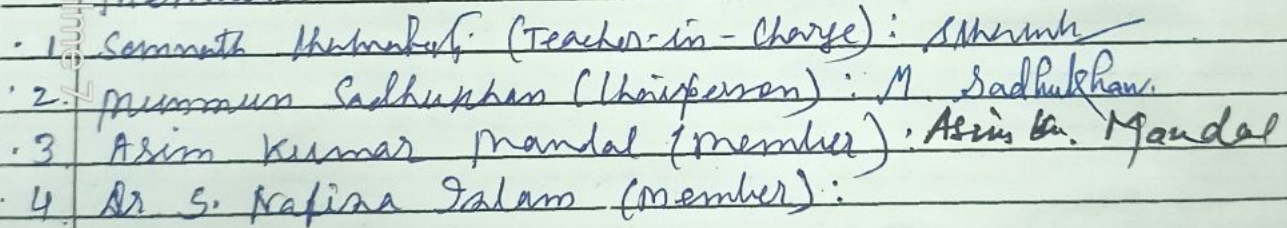 1. Somnath (Teacher-in-Charge):
2. Munmun Sadhukhan (Chairperson): M. Sadhukhan.
3 Asim Kumar Mandal (member): Asim Kr. Mandal
4 Dr S. Nafisa Islam (member):